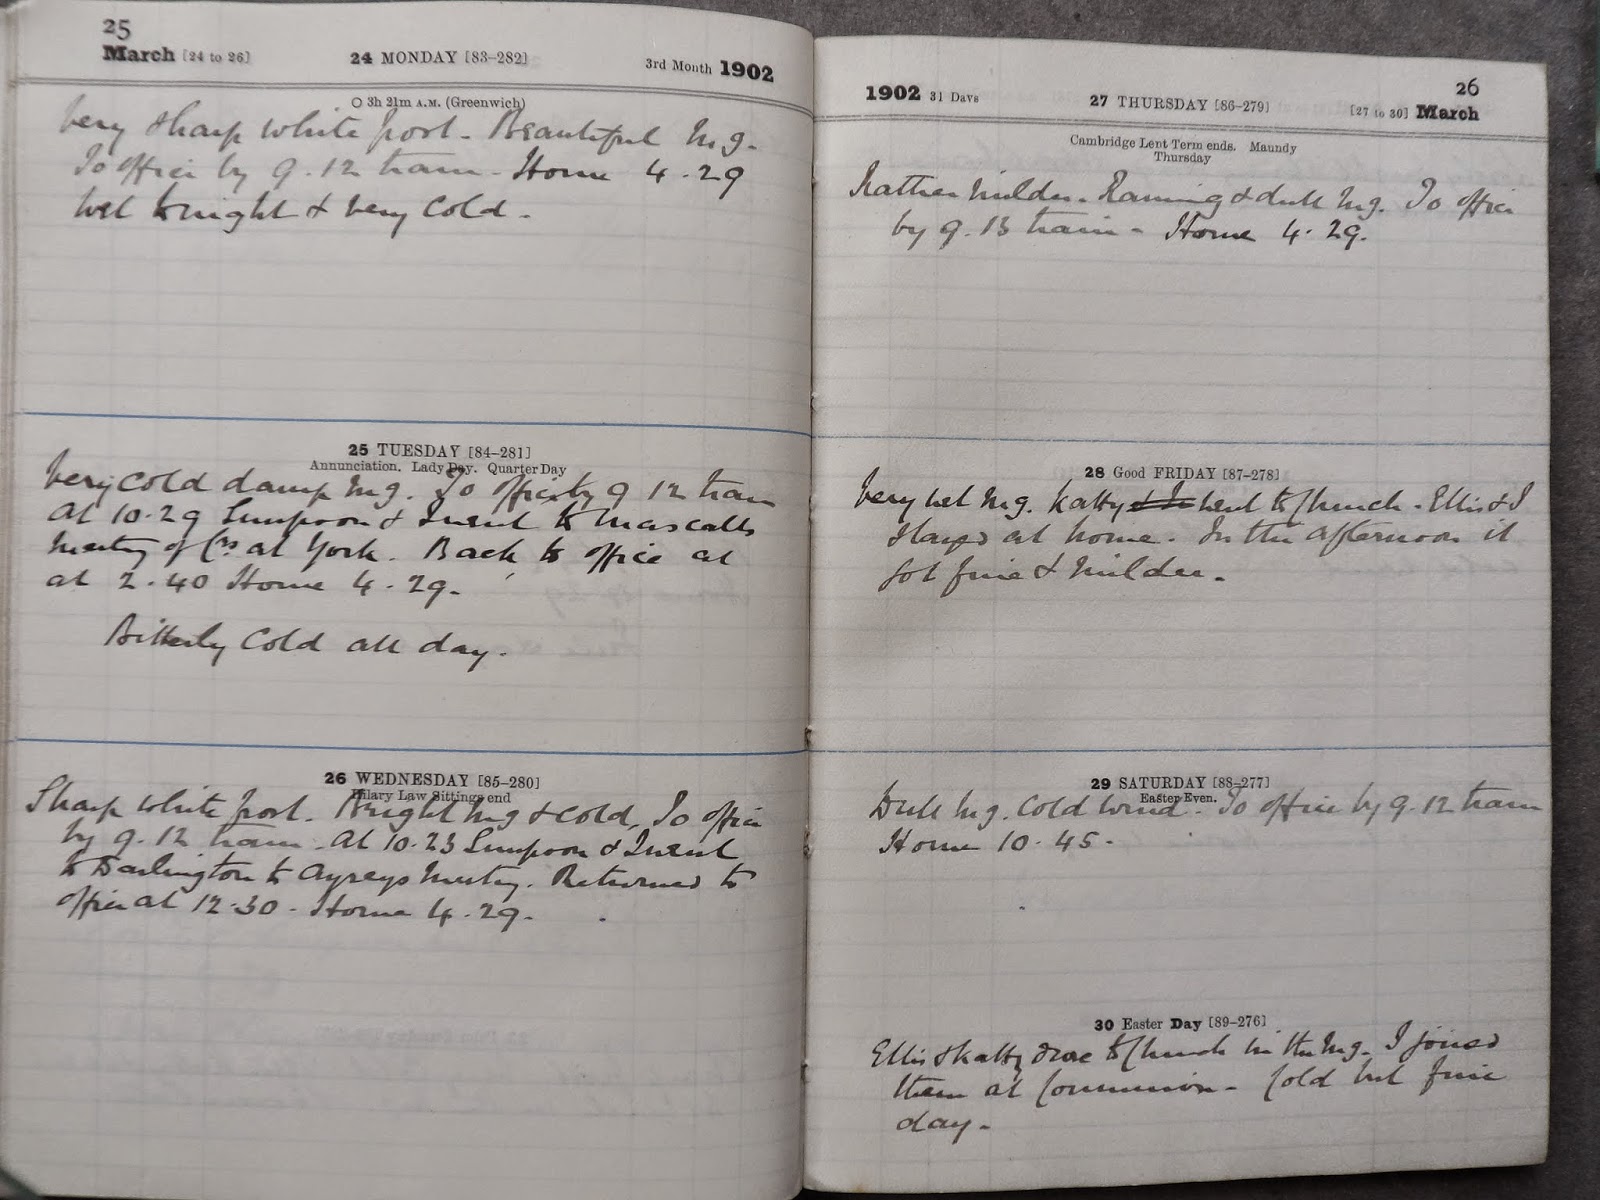 25
March [24 to 26] 24 MONDAY [83–282] 3rd Month 1902
3h 21m A.M. (Greenwich)
Very sharp white frost - Beautiful Mg.
To office by 9.12 train - Home 4.29
Wet tonight & very cold -
25 TUESDAY [84–281]
Annunciation. Lady Day. Quarter Day
Very cold damp Mg. To office by 9 12 train
At 10.29 Simpson & I went to Mascalls
Meeting of Crs at York. Back to office at
at 2.40 Home 4.29.
Bitterly cold all day.
26 WEDNESDAY [85–280]
Hilary Law Sittings end
Sharp white frost. Bright Mg & cold, To office
by 9.12 train - At 10.23 Simpson & I went
to Darlington to Ayreys Meeting. Returned to
office at 12.30 - Home 4.29.
26
1902 31 Days 27 THURSDAY [86–279] [27 to 30] March
Cambridge Lent Term ends. Maundy
Thursday
Rather milder. Raining & dull Mg. To office
by 9.13 train - Home 4.29.
28 Good FRIDAY [87–278]
Very wet Mg. Katty & I went to Church - Ellis & I
stayed at home. In the afternoon it
got fine & milder.
29 SATURDAY [88–277]
Easter Even.
Dull Mg. cold wind. To office by 9.12 train
Home 10.45.
30 Easter Day [89–276]
Ellis & Katty drove to Church in the Mg. I joined
them at Communion - Cold but fine
day.